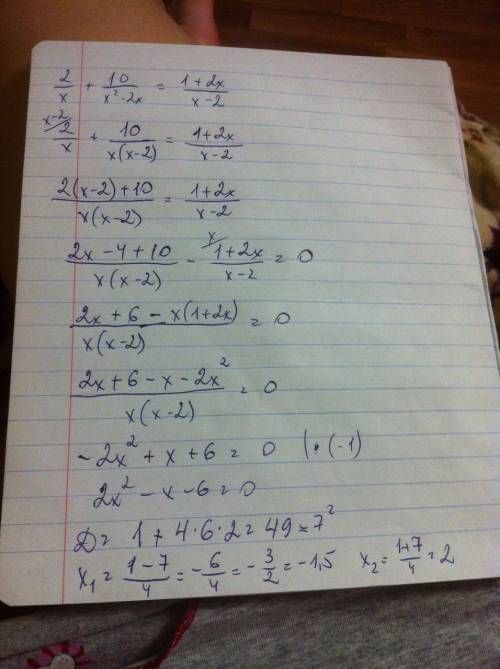 2/x + 10/(x²-2x) = (1+2x)/(x-2)
x-2/ 2/x + 10/(x(x-2)) = (1+2x)/(x-2)
(2(x-2)+10)/(x(x-2)) = (1+2x)/(x-2)
(2x-4+10)/(x(x-2)) - x/ (1+2x)/(x-2) = 0
(2x+6-x(1+2x))/(x(x-2)) = 0
(2x+6-x-2x²)/(x(x-2)) = 0
-2x²+x+6=0 |·(-1)
2x²-x-6=0
D= 1+4·6·2=49=7²
x₁= (1-7)/4 = -6/4 = -3/2 = -1,5 x₂= (1+7)/4 = 2